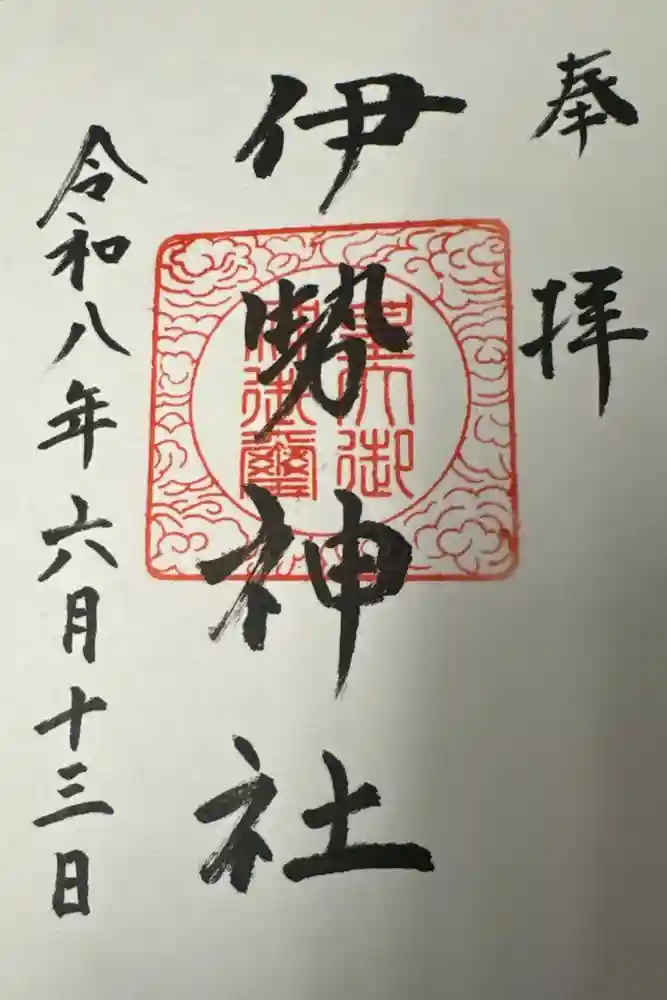 奉拝
伊勢神社
令和八年六月十三日